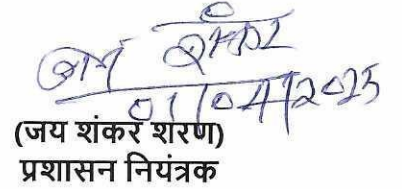 जय शंकर
01/04/2025
(जय शंकर शरण)
प्रशासन नियंत्रक